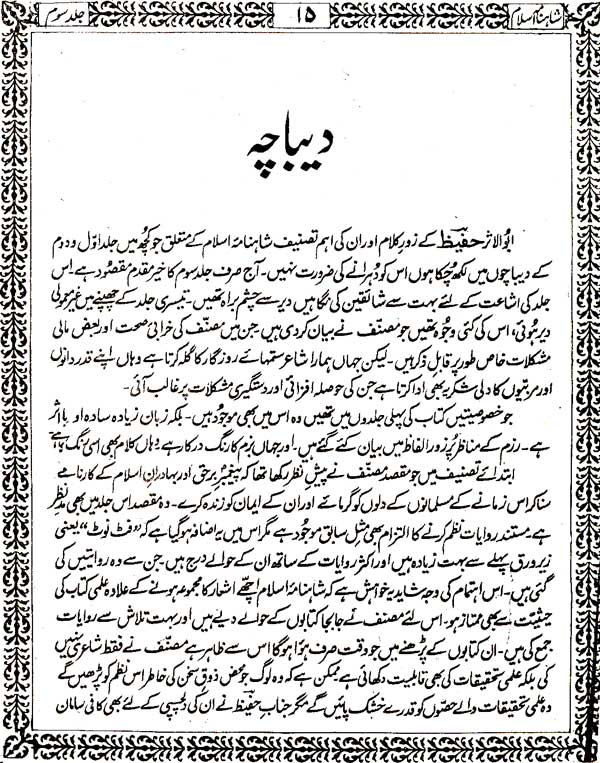 شاہنامہ اسلام
۱۵
جلد سوم
دیباچہ
ابوالاثر حفیظ کے زورِ کلام اور ان کی اہم تصنیف شاہنامۂ اسلام کے متعلق جو کچھ میں جلد اوّل و دوم
کے دیباچوں میں لکھ چکا ہوں اس کو دُہرانے کی ضرورت نہیں۔ آج صرف جلد سوم کا خیر مقدم مقصود ہے اس
جلد کی اشاعت کے لئے بہت سے شائقین کی نگاہیں دیر سے چشم براہ تھیں۔ تیسری جلد کے چھپنے میں غیر معمولی
دیر ہوئی، اس کی کئی وجوہ تھیں جو مصنف نے بیان کر دی ہیں جن میں مصنف کی خرابی صحت اور بعض مالی
مشکلات خاص طور پر قابلِ ذکر ہیں۔ لیکن جہاں ہمارا شاعر ستمہائے روزگار کا گلہ کرتا ہے وہاں اپنے قدر دانوں
اور مربیوں کا دلی شکریہ بھی ادا کرتا ہے جن کی حوصلہ افزائی اور دستگیری مشکلات پر غالب آئی۔
جو خصوصیتیں کتاب کی پہلی جلدوں میں تھیں وہ اس میں بھی موجود ہیں۔ بلکہ زبان زیادہ سادہ اور با اثر
ہے۔ رزم کے مناظر پُر زور الفاظ میں بیان کئے گئے ہیں۔ اور جہاں بزم کا رنگ درکار ہے وہاں کلام بھی اسی رنگ کا ہے
ابتدائے تصنیف میں جو مقصد مصنف نے پیشِ نظر رکھا تھا کہ پیغمبرِ برحق اور بہادرانِ اسلام کے کارنامے
سنا کر اس زمانے کے مسلمانوں کے دلوں کو گرمائے اور ان کے ایمان کو زندہ کرے۔ وہ مقصد اس جلد میں بھی مدِ نظر
ہے مستند روایات نظم کرنے کا التزام بھی مثلِ سابق موجود ہے مگر اس میں یہ اضافہ ہو گیا ہے کہ "فٹ نوٹ" یعنی
زیرِ ورق پہلے سے بہت زیادہ ہیں اور اکثر روایات کے ساتھ ان کے حوالے درج ہیں۔ جن سے وہ روایتیں لی
گئی ہیں۔ اس اہتمام کی وجہ شاید یہ خواہش ہے کہ شاہنامۂ اسلام اچھے اشعار کا مجموعہ ہونے کے علاوہ علمی کتاب کی
حیثیت سے بھی ممتاز ہو۔ اس لئے مصنف نے جابجا کتابوں کے حوالے دیے ہیں اور بہت تلاش سے روایات
جمع کی ہیں۔ ان کتابوں کے پڑھنے میں جو وقت صرف ہوا ہوگا اس سے ظاہر ہے مصنف نے فقط شاعری نہیں
کی بلکہ علمی تحقیقات کی بھی قابلیت دکھائی ہے ممکن ہے کہ وہ لوگ جو محض ذوقِ سخن کی خاطر اس نظم کو پڑھیں گے
وہ علمی تحقیقات والے حصوں کو قدرے خشک پائیں گے مگر جناب حفیظ نے ان کی دلچسپی کے لئے بھی کافی سامان